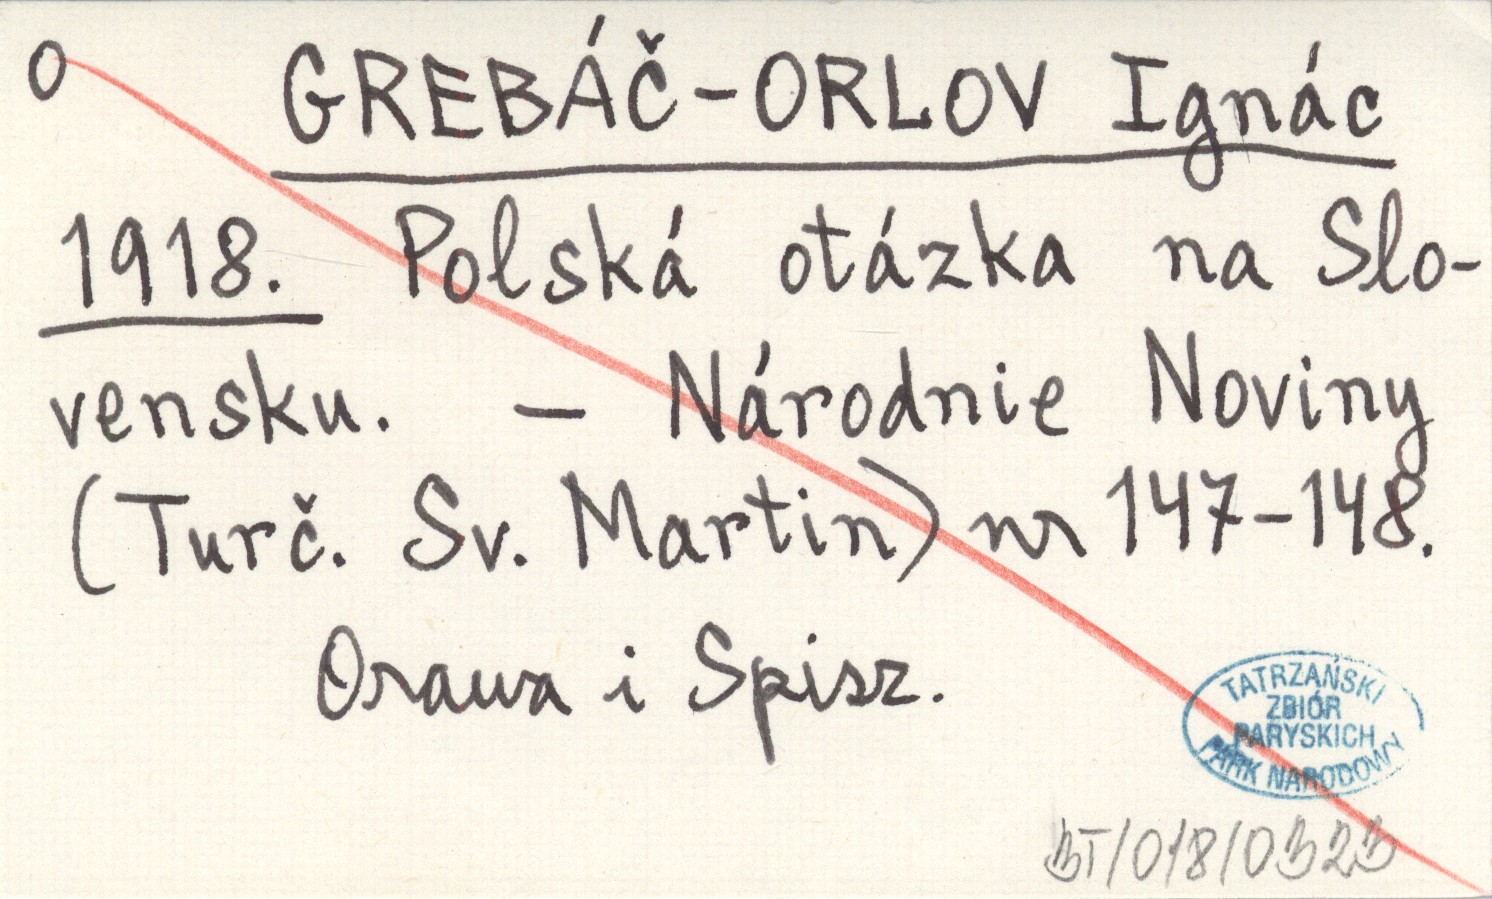 O GREBÁČ-ORLOV Ignác
1918. Polská otázka na Slo-
vensku. — Národnie Noviny
(Turč. Sv. Martin) nr 147-148.
Orawa i Spisz.
TATRZAŃSKI
ZBIÓR
PARYSKICH
PARK NARODOWY
BT/018/0323